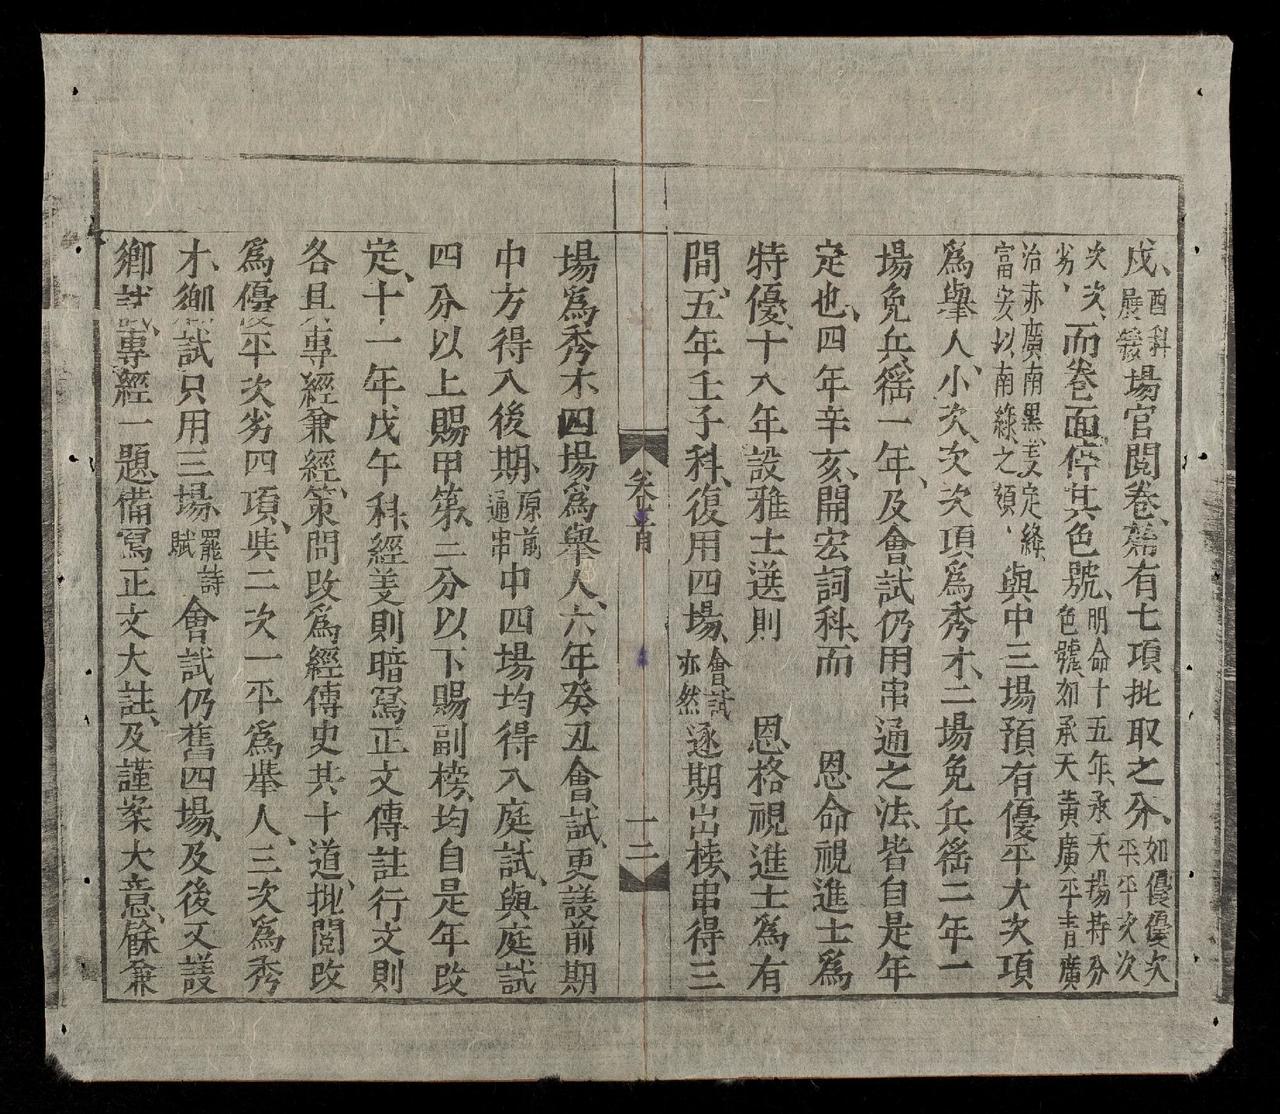 戌、酉科展綴場官閱卷、篇有七項批取之分、如優優次平平次次
次次劣、而卷面停其色號、明命十五年、承天揚特分色號如承天黃廣平青廣
治赤廣南黑乂定絳、富安以南綠之類、與中三場預有優平大次項
爲舉人、小次、次次項爲秀才、二場免兵徭二年一
場免兵徭一年、及會試仍用串通之法、皆自是年
定也、四年辛亥、開宏詞科、而 恩命視進士爲
特優、十八年設雅士選則 恩格視進士爲有
間、五年壬子科、復用四場、會試亦然逐期出榜、串得三
卷首
十二
場爲秀才四場爲舉人、六年癸丑會試、更設前期
中方得入後期、原前通串中四場均得入庭試、與庭試
四分以上賜甲第、二分以下賜副榜、均自是年改
定、十一年戊午科、經義則暗寫正文傳註行文則
各具專經兼經、策問改爲經傳史共十道、批閱改
爲優平次劣四項、與二次一平爲舉人、三次爲秀
才、鄉試只用三場、罷詩賦會試仍舊四場、及後又設
鄉試專經一題、備寫正文大註、及謹案大意、餘兼